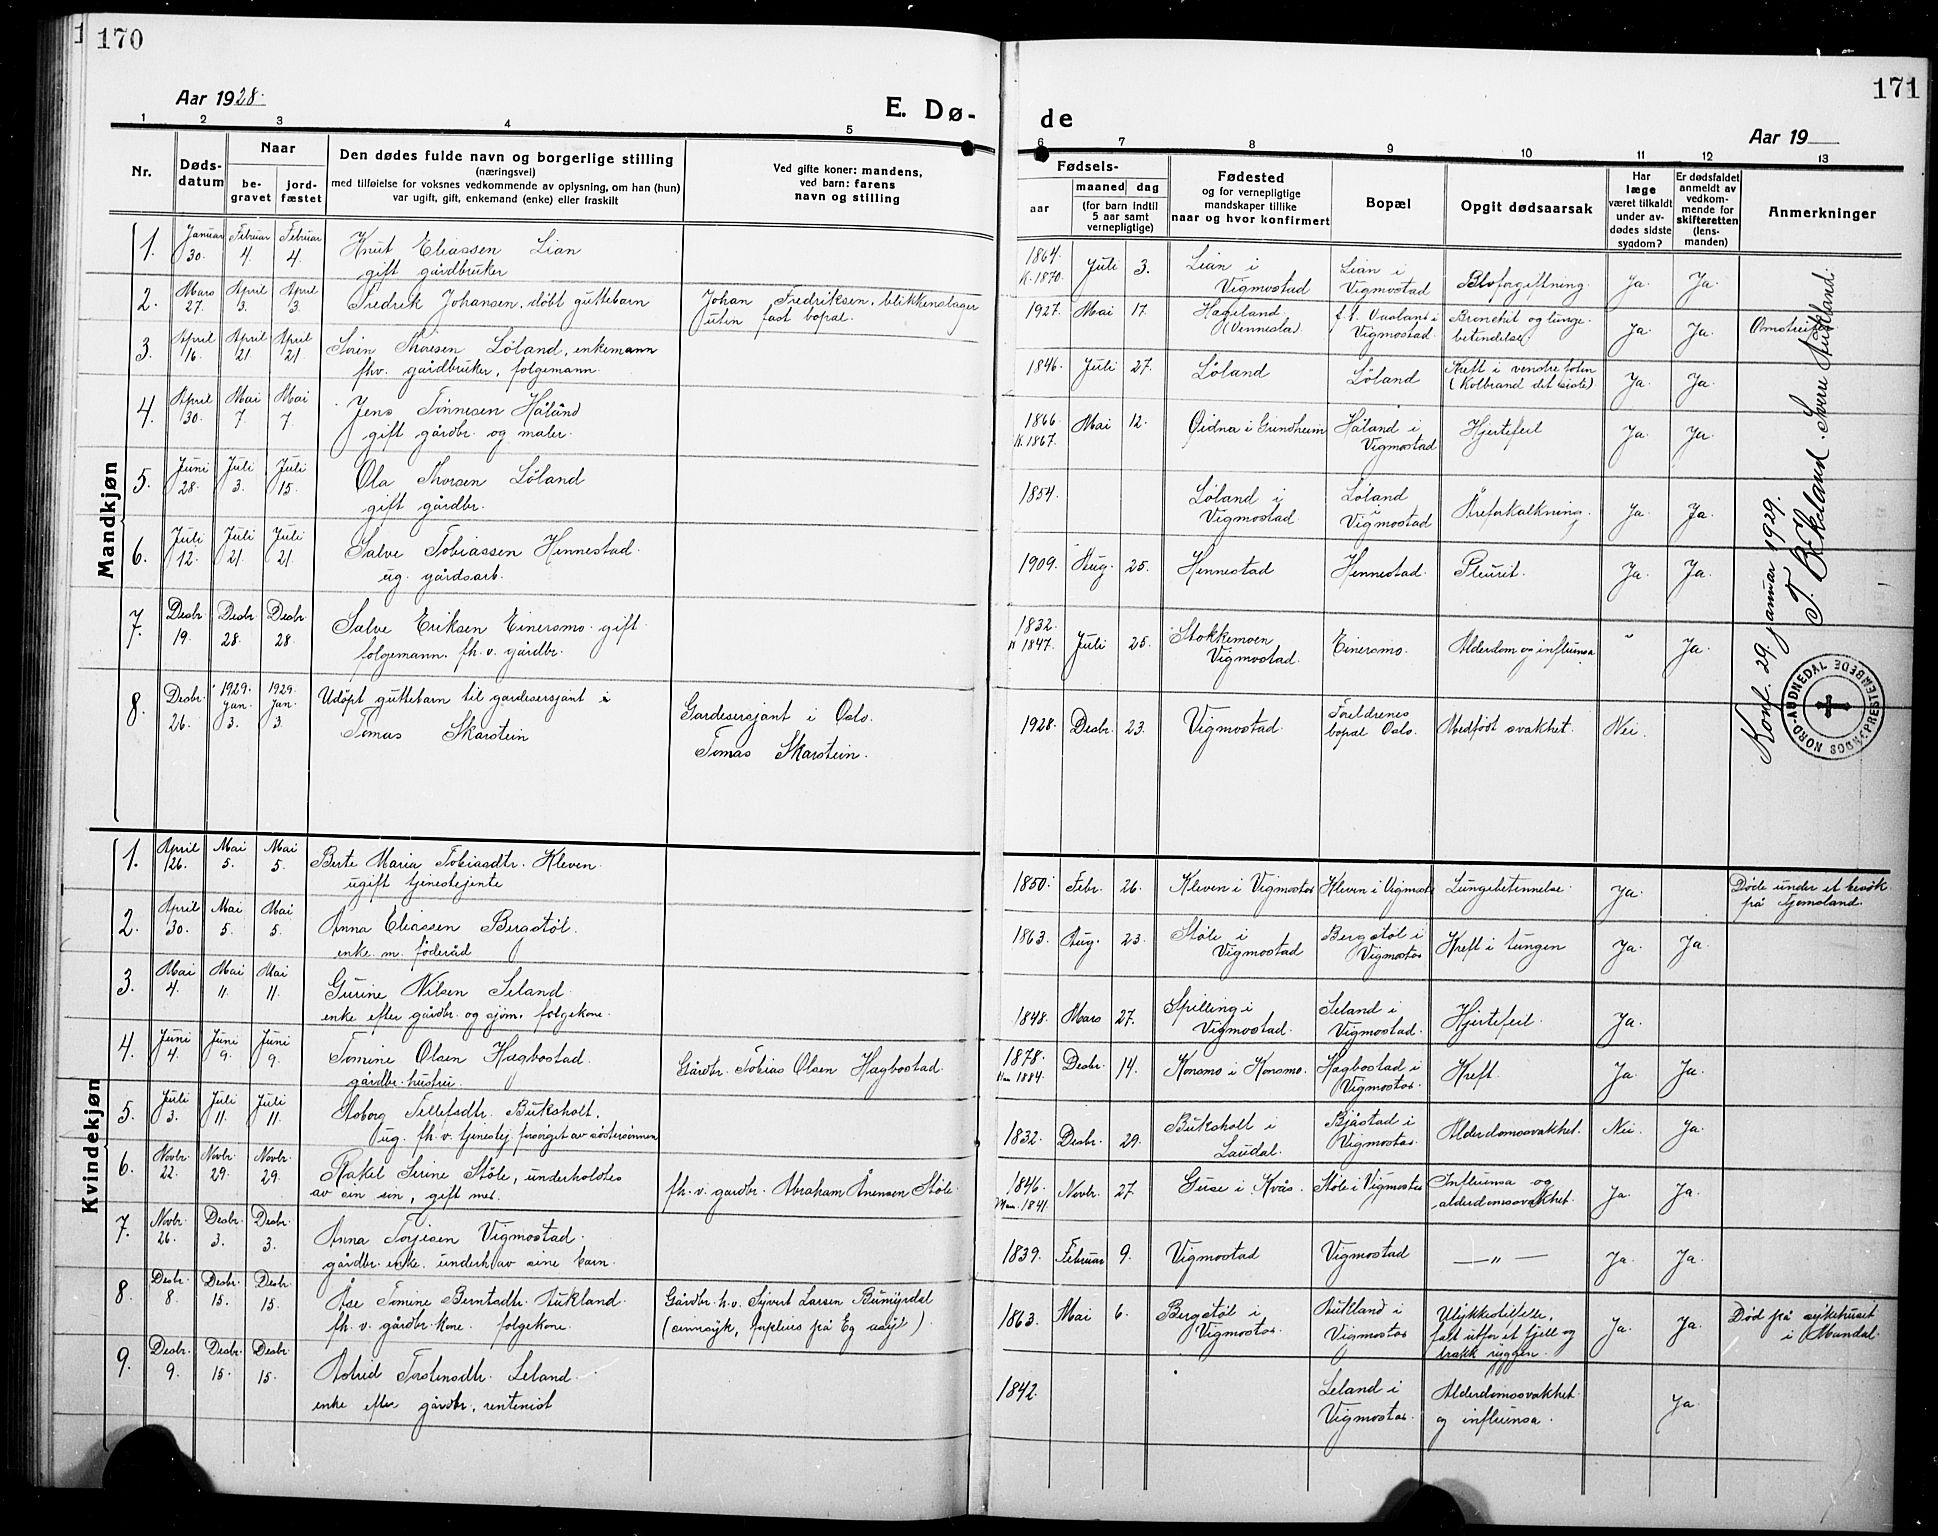 170
Aar 1928.
E. Dø-
1 2 3 4 5
Nr.
Døds-
datum
Naar
be-
gravet
jord-
fæstet
Den dødes fulde navn og borgerlige stilling
(næringsvei)
med tilføielse for voksnes vedkommende av oplysning, om han (hun)
var ugift, gift, enkemand (enke) eller fraskilt
Ved gifte koner: mandens,
ved barn: farens
navn og stilling
Mandkjøn
1. Januar 30. Februar 4. Februar 4. Knut Eliassen Lian
gift gårdbruker
2. Mars 27. April 3. April 3. Fredrik Johansen, døbt guttebarn Johan Fredriksen, blikkenslager
uten fast bopæl.
3. April 16. April 21 April 21 Sören Thoresen Löland, enkemann
fhv. gårdbruker, folgemann.
4. April 30. Mai 7. Mai 7. Jens Tönnesen Håland
gift gårdbr. og maler.
5. Juni 28. Juli 3. Juli 15. Ola Thorsen Löland
gift gårdbr.
6. Juli 12. Juli 21 Juli 21. Salve Tobiassen Hennestad.
ug. gårdsarb.
7. Desbr. 19. Desbr. 28. Desbr. 28. Salve Eriksen Einersmo. gift
folgemann. fh. v. gårdbr.
8. Desbr. 26. 1929. Jan. 3. 1929. Jan. 3. Udöpt guttebarn til gardesersjant i
Tomas Skarstein
Gardesersjant i Oslo.
Tomas Skarstein.
Kvindekjøn
1. April 26. Mai 5. Mai 5. Berte Maria Tobiasdtr. Kleven.
ugift tjenestejente
2. April 30. Mai 5. Mai 5. Anna Eliassen Bergstöl.
enke m. föderåd
3. Mai 4. Mai 11. Mai 11. Gurine Nilsen Seland.
enke efter gårdbr. og sjöm. folgekone.
4. Juni 4. Juni 9. Juni 9. Tomine Olsen Hægbostad. Gårdbr. Tobias Olsen Hægbostad.
gårdbr. hustru.
5. Juli 3. Juli 11. Juli 11. Åsborg Tellefsdtr. Buksholt.
ug. fh. v. tjenestej. forsörget av söstersönnen
6. Novbr. 22. Novbr. 29. Novbr. 29. Rakel Serine Stöle, underholdtes
av sin sön, gift med fh. v. gardbr. Abraham Ånensen Stöle.
7. Novbr. 26. Desbr. 3. Desbr. 3. Anna Torjesen Vigmostad.
gårdbr. enke. underh. av sine barn.
8. Desbr. 8. Desbr. 15. Desbr. 15. Åse Tomine Berntsdtr. Aukland.
fh. v. gårdbr. kone. folgekone.
Gårdbr. h. v. Sjvert Larsen
(sinnsyk, på Eg asyl).
9. Desbr. 9. Desbr. 15. Desbr. 15. Astrid Torstensdtr. Leland.
enke efter gårdbr., rentenist
171
de
Aar 19
6 7 8 9 10 11 12 13
Fødsels-
aar
maaned dag
(for barn indtil
5 aar samt
vernepligtige)
Fødested
og for vernepligtige
mandskaper tillike
naar og hvor konfirmert
Bopæl
Opgit dødsaarsak
Har
læge
været tilkaldt
under av-
dødes sidste
sygdom?
Er dødsfaldet
anmeldt av
vedkom-
mende for
skifteretten
(lens-
manden)
Anmerkninger
1864. K. 1870. Juli 3. Lian i Vigmostad Lian i Vigmostad Blodforgiftning. Ja. Ja.
1927. Mai 17. Hægeland (Vennesla). Vigmostad. Bronchit og lunge-
betendelse. Ja. Ja. Omstreifer
1846. Juli 27. Löland Löland Kreft i venstre foten
(Kolbrand det siste) Ja. Ja.
1866 K. 1867. Mai 12. Öidna i Grindheim Håland i Vigmostad Hjertefeil Ja. Ja.
1854. Löland i Vigmostad Löland i Vigmostad Åreforkalkning. Ja. Ja.
1909. Aug. 25. Hennestad Hennestad. Pleurit. Ja. Ja.
1832. K 1847. Juli 25. Stokkemoen Vigmostad. Einersmo. Alderdom og influensa " Ja.
1928. Desbr. 23. Vigmostad. Foreldrenes bopæl Oslo. Medfödt svakhet. Nei.
Konf. 29. januar 1929.
T. Sverre Aukland.
NORD-AUDNEDAL SOGNEPRESTEMBEDE
1850. Febr. 26. Kleven i Vigmostad Kleven i Vigmost. Lungebetennelse. Ja. Döde under et besök
på
1863. Aug. 23. Stöle i Vigmostad Bergstöl i Vigmostad Kreft i tungen Ja. Ja.
1848. Mars 27. Spilling i Vigmostad. Seland i Vigmostad. Hjertefeil. Ja.
1878. 1884. Desbr. 14. Konsmo i Konsmo. Hægbostad i Vigmostad. Kreft. Ja. Ja.
1832. Desbr. 29. Buksholt i Laudal. Bjåstad i Vigmostad. Alderdomssvakhet. Nei. Ja.
1846. 1841. Novbr. 27. Guse i Kvås. Stöle i Vigmostad Influensa og
alderdomssvakhet. Ja. Ja.
1839. Februar 9. Vigmostad Vigmostad — " — Ja. Ja.
1863. Mai 6. Bergstöl i Vigmostad. Aukland i Vigmostad Ulykkestilfelle,
falt utfor et fjell og
brakk ryggen. Ja. Ja. Död på sykehuset
i Mandal.
1842. Leland i Vigmostad. Alderdomssvakhet
og influensa. Ja